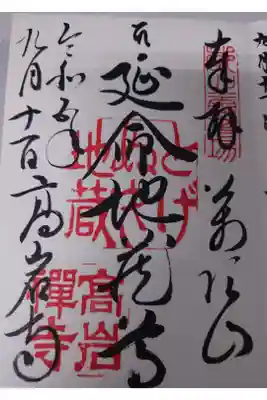 奉拝 萬頂山
延命地蔵尊
令和五年
九月十一日 高岩寺
とげ
ぬき
地蔵
高岩
禪寺